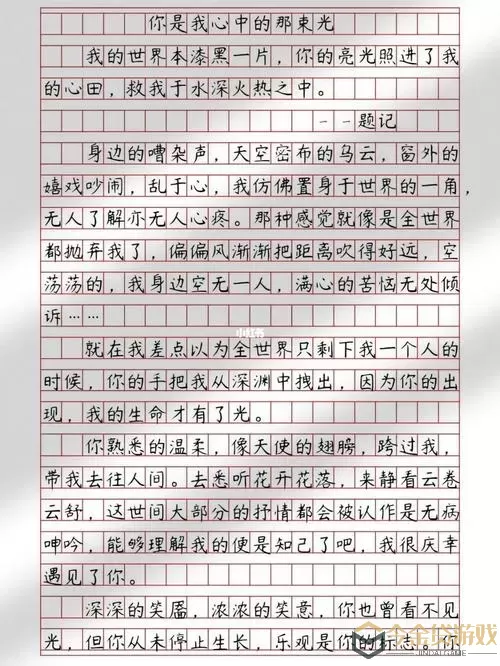 你是我心中的那束光
我的世界本漆黑一片，你的亮光照进了我
的心田，救我于水深火热之中。
－－题记
身边的嘈杂声，天空密布的乌云，窗外的
嬉戏吵闹，乱于心，我仿佛置身于世界的一角，
无人了解亦无人心疼。那种感觉就像是全世界
都抛弃我了，偏偏风渐渐把距离吹得好远，空
荡荡的，我身边空无一人，满心的苦恼无处倾
诉……
小红书
就在我差点以为全世界只剩下我一个人的
时候，你的手把我从深渊中拽出，因为你的出
现，我的生命才有了光。
你熟悉的温柔，像天使的翅膀，跨过我，
带我去往人间。去悉听花开花落，来静看云卷
云舒，这世间大部分的抒情都会被认作是无病
呻吟，能够理解我的便是知己了吧，我很庆幸
遇见了你。
深深的笑靥，浓浓的笑意，你也曾看不见
光，但你从未停止生长，乐观是你的标志。你
游戏